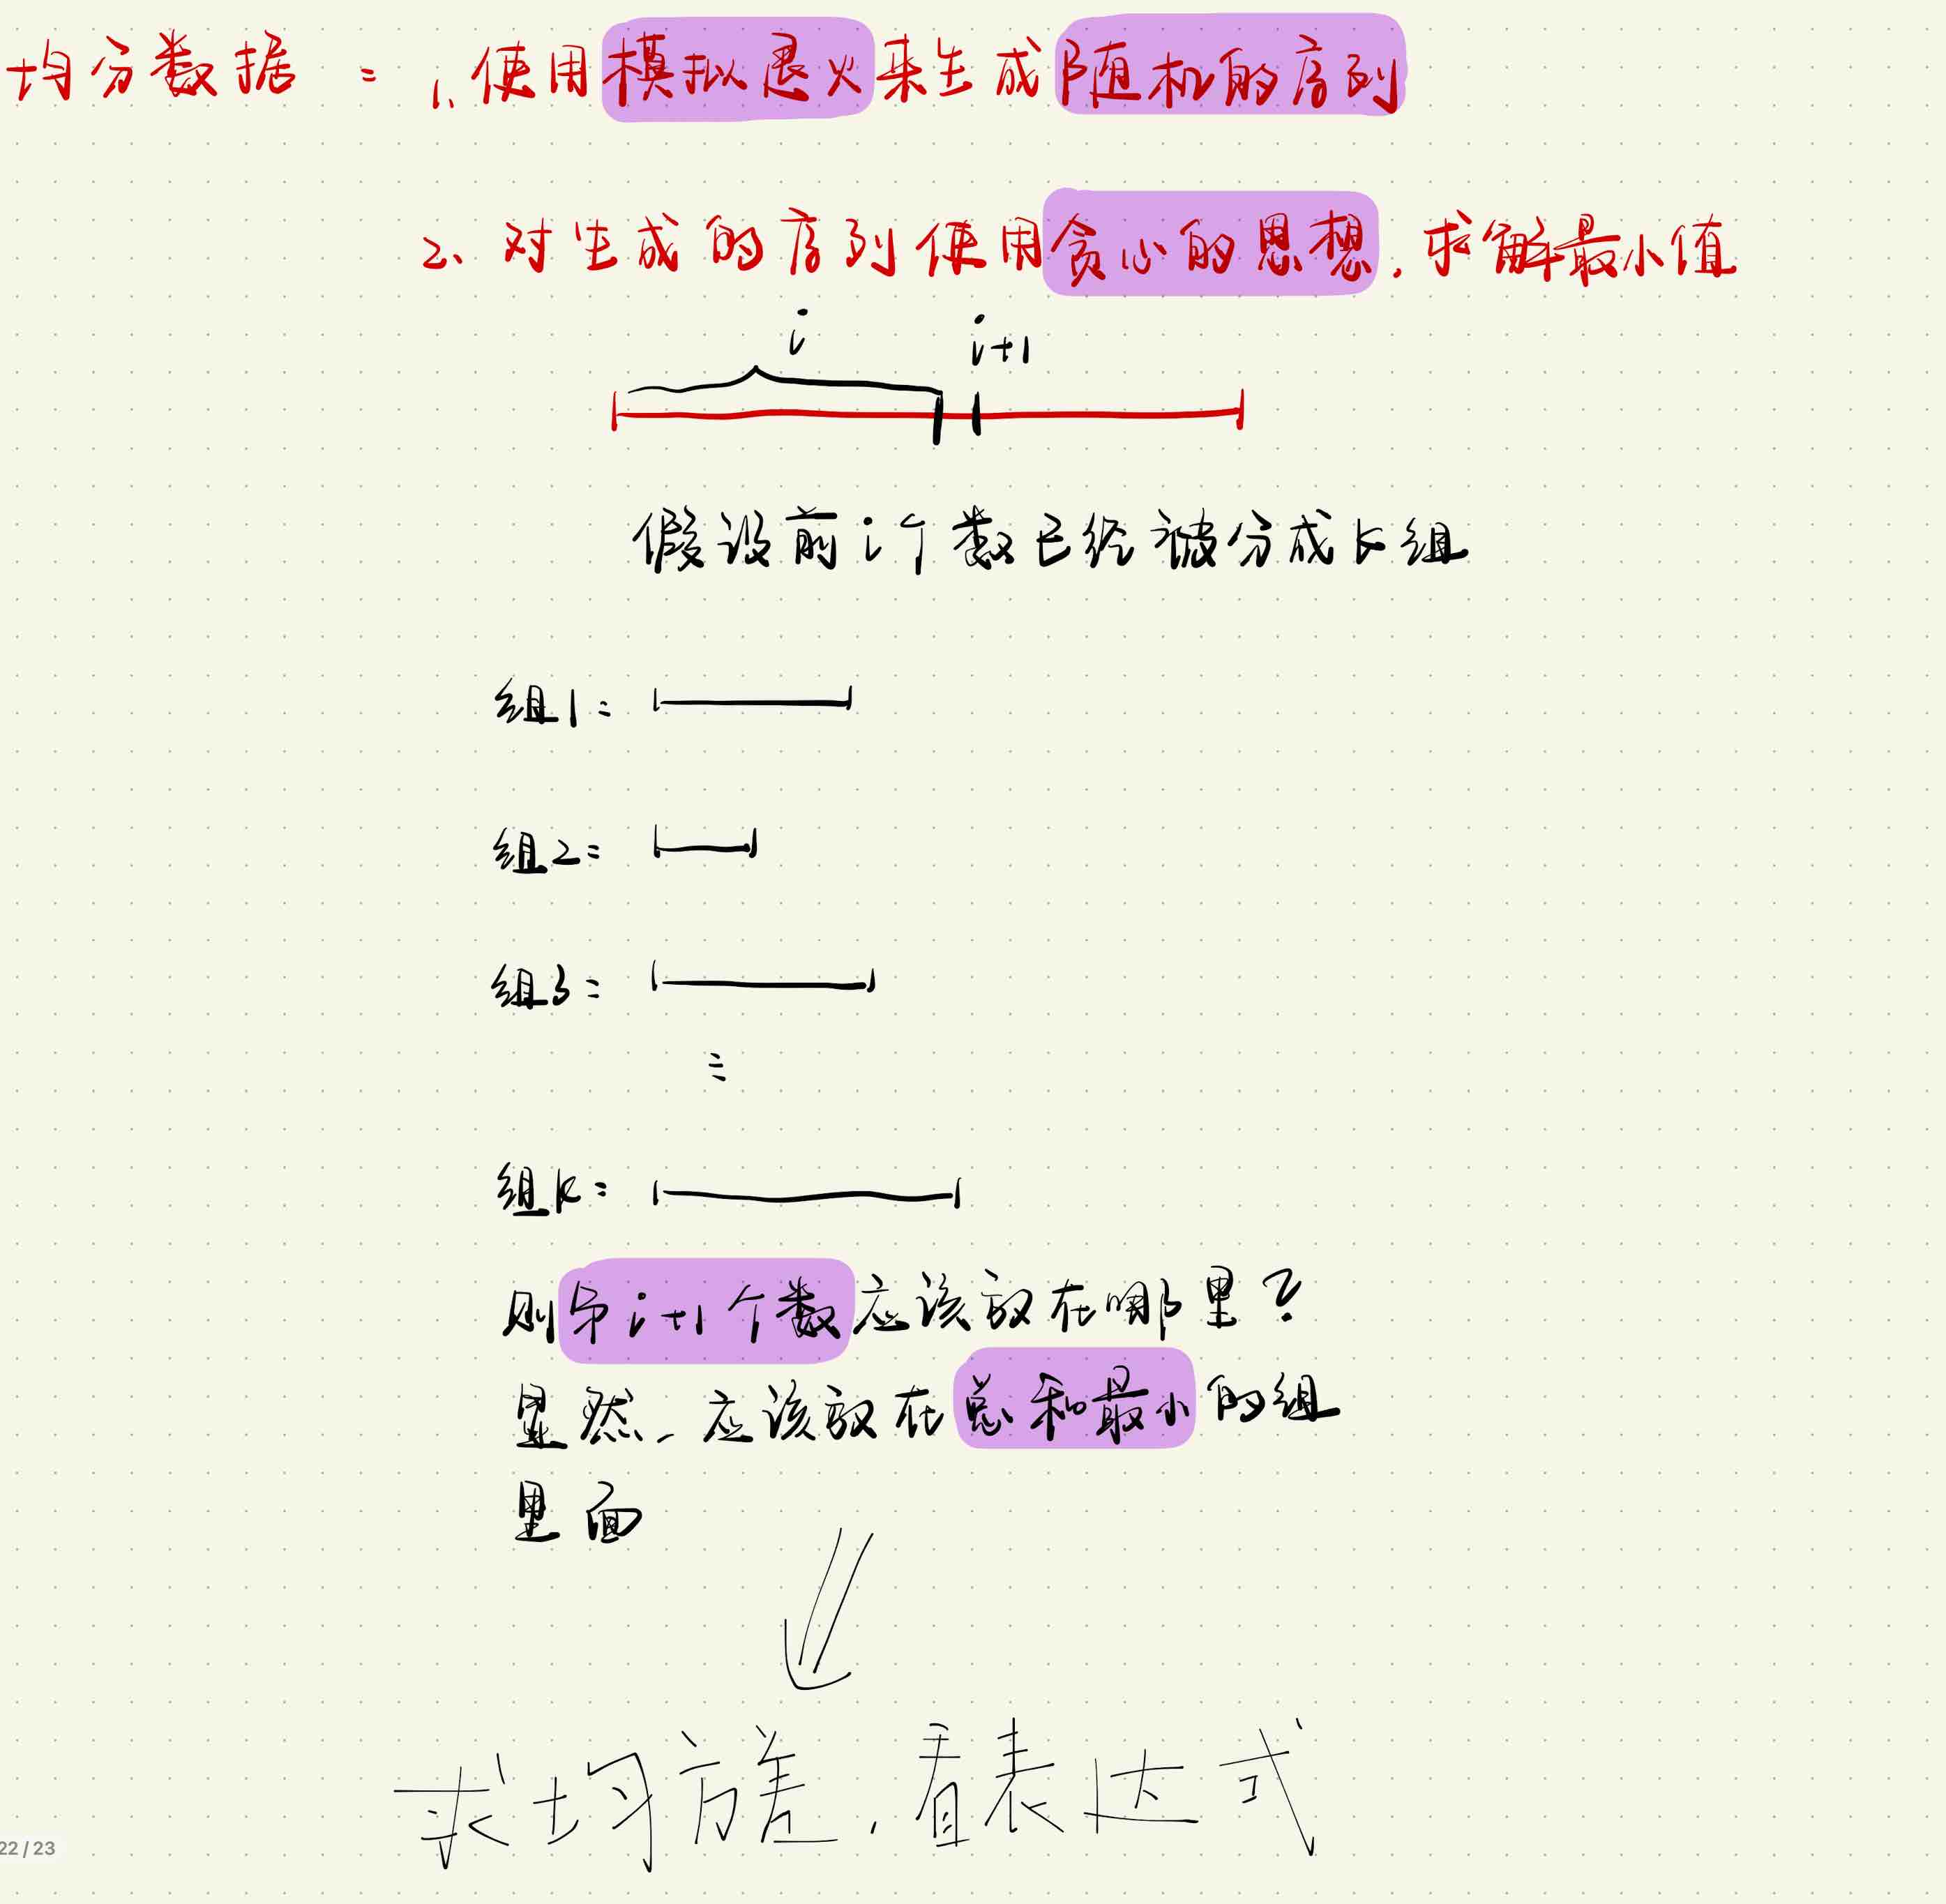 均分数据：1、使用模拟退火来生成随机的序列
2、对生成的序列使用贪心的思想，求解最小值
i
i+1
假设前i个数已经被分成k组
组1：
组2：
组3：
组k：
则第i+1个数应该放在哪里？
显然，应该放在总和最小的组
里面
求均方差，看表达式
22 / 23